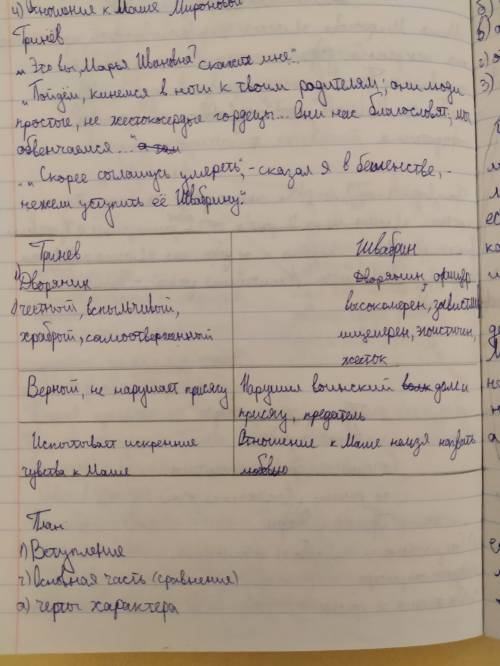 4) Отношение к Маше Мироновой
Гринёв
„Это вы, Марья Ивановна? скажите мне"..
„Пойдём, кинемся в ноги к твоим родителям; они люди
простые, не жестокосердые гордецы... Они нас благословят; мы
обвенчаемся..."
„Скорее соглашусь умереть", - сказал я в бешенстве, -
нежели уступить её Швабрину".
Гринев Швабрин
Дворянин Дворянин, офицер
честный, вспыльчивый, высокомерен, завистлив
храбрый, самоотверженный лицемерен, эгоистичен,
жесток
Верный, не нарушает присягу Нарушил воинский долг и
присягу, предатель
Испытывает искренние Отношение к Маше нельзя назвать
чувства к Маше любовью
План
1) Вступление
2) Основная часть (сравнения)
а) черты характера